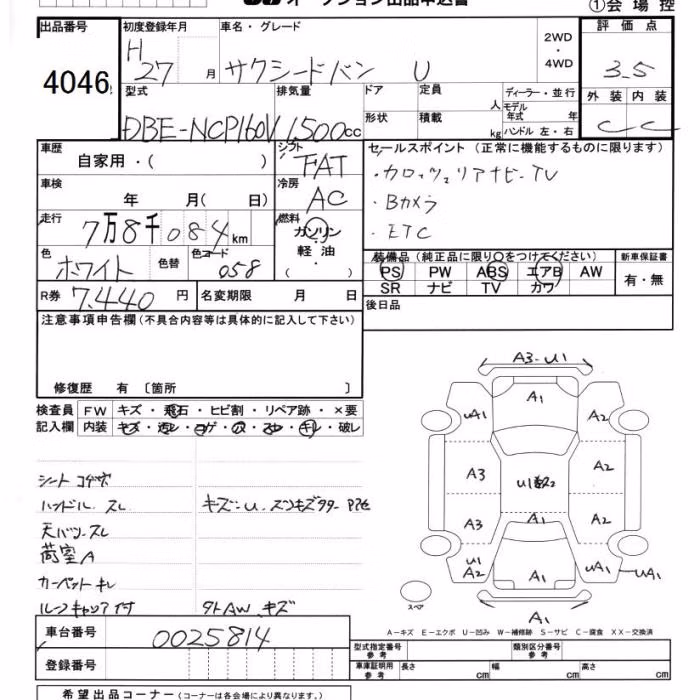 オークション出品申込書
①会場控
出品番号
4046
初度登録年月
H
27 月
車名・グレード
サクシードバン U
2WD
・
4WD
評価点
3.5
外装 内装
C C
型式
DBE-NCP160V
排気量
1500cc
ドア
形状
定員
人
積載
kg
ディーラー・並行
モデル
年式 年
ハンドル 左・右
車歴
自家用・( )
シフト
FAT
セールスポイント (正常に機能するものに限ります)
・カロッツェリアナビ-TV
・Bカメラ
・ETC
車検
年 月( 日)
冷房
AC
走行
7万8千084km
燃料
ガソリン
軽油
( ・ )
色
ホワイト
色替
色コード
058
装備品 (純正品に限り○をつけてください)
PS PW ABS エアB AW
SR ナビ TV カワ
新車保証書
有・無
R券 7,440 円
名変期限 月 日
後日品
注意事項申告欄(不具合内容等は具体的に記入して下さい)
修復歴 有 〔箇所 〕
検査員
記入欄
FW キズ・飛石・ヒビ割・リペア跡・×要
内装 キズ・汚レ・コゲ・穴・スレ・キレ・破レ
シート コゲ穴
ハンドル スレ
キズ=U
天バリ スレ
荷室A
カーペット キレ
ルーフキャリア付
外AW キズ
A3-U1
A1
UA1
A2
A3
A2
A3
A1
A2
U1
A2
A1
UA1
UA1
スペア
A1
A-キズ E-エクボ U-凹み W-補修跡 S-サビ C-腐食 XX-交換済
車台番号
0025814
登録番号
型式指定番号
参考
類別区分番号
参考
車庫証明用
参考
長さ cm
幅 cm
高さ cm
希望出品コーナー (コーナーは各会場により異なります。)